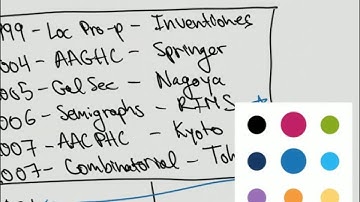 199 - Loc Pro-p - Inventiones
004 - AAGHC - Springer
005 - GalSec - Nagoya
006 - Semigraphs - RIMS
007 - AACPHC - Kyoto
007 - Combinatorial - Toh